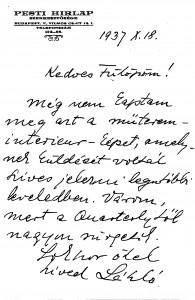 PESTI HIRLAP
SZERKESZTŐSÉGE
BUDAPEST, V, VILMOS CS.-UT 78. I.
TELEFONSZÁM
1937 X. 18.
Kedves Fülöpöm!
Még nem kaptam
meg azt a műterem-
interieur-képet, amely-
nek küldését voltál
kíves jelezni legutóbbi
leveledben. Várom,
mert a Quarterlytől
nagyon sürgetik.
Sokszor ölel
híved László